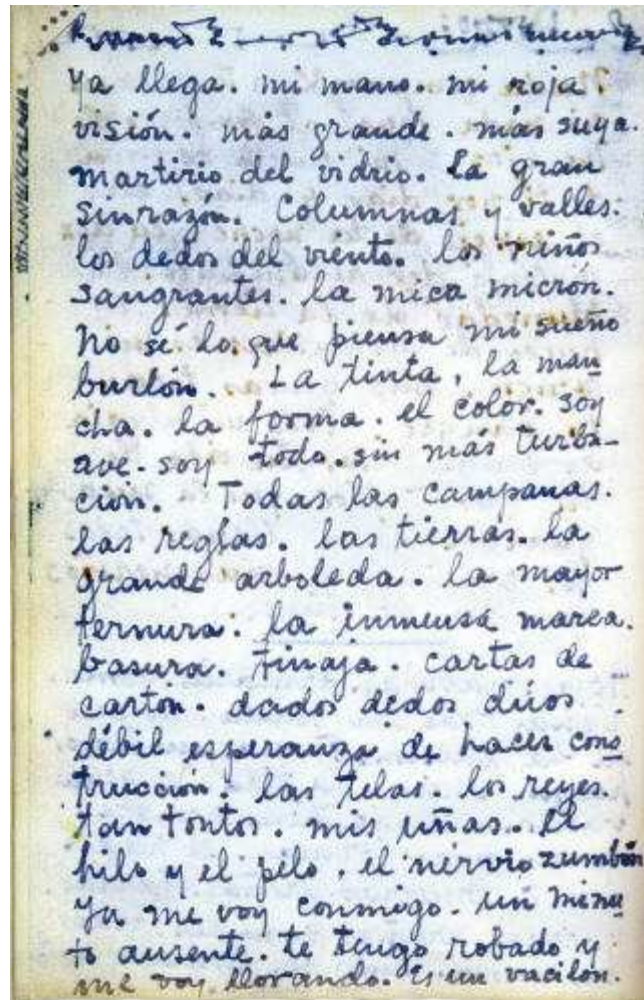 Ya llega. mi mano. mi roja
visión. más grande. más suya.
martirio del vidrio. La gran
sinrazón. Columnas y valles.
los dedos del viento. los niños
sangrantes. la mica micrón.
No sé lo que piensa mi sueño
burlón. La tinta, la man
cha. la forma. el color. soy
ave. soy todo. sin más turba-
ción. Todas las campanas.
las reglas. las tierras. la
grande arboleda. la mayor
ternura. la inmensa marea.
basura. tinaja. cartas de
cartón. dados dedos dúos
débil esperanza de hacer cons
trucción. las telas. los reyes.
tan tontos. mis uñas. el
hilo y el pelo. el nervio zumbón
ya me voy conmigo. un minu
to ausente. te tengo robado y
me voy llorando. Es un vacilón.